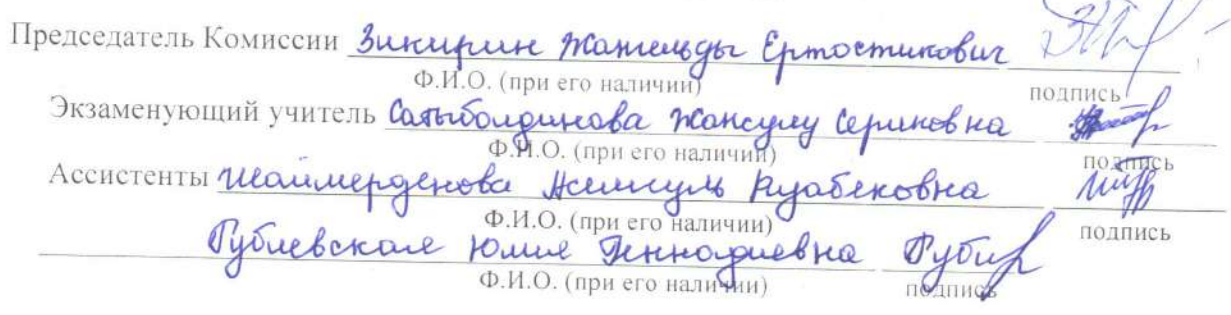 Председатель Комиссии Зикирин Жанельды Ертостикович
Ф.И.О. (при его наличии) подпись
Экзаменующий учитель Сатыболдинова Жансулу Сериковна
Ф.И.О. (при его наличии) подпись
Ассистенты Шаймерденова Жемисгуль
Ф.И.О. (при его наличии) подпись
Рублевская Юлия Геннадиевна
Ф.И.О. (при его наличии) подпись